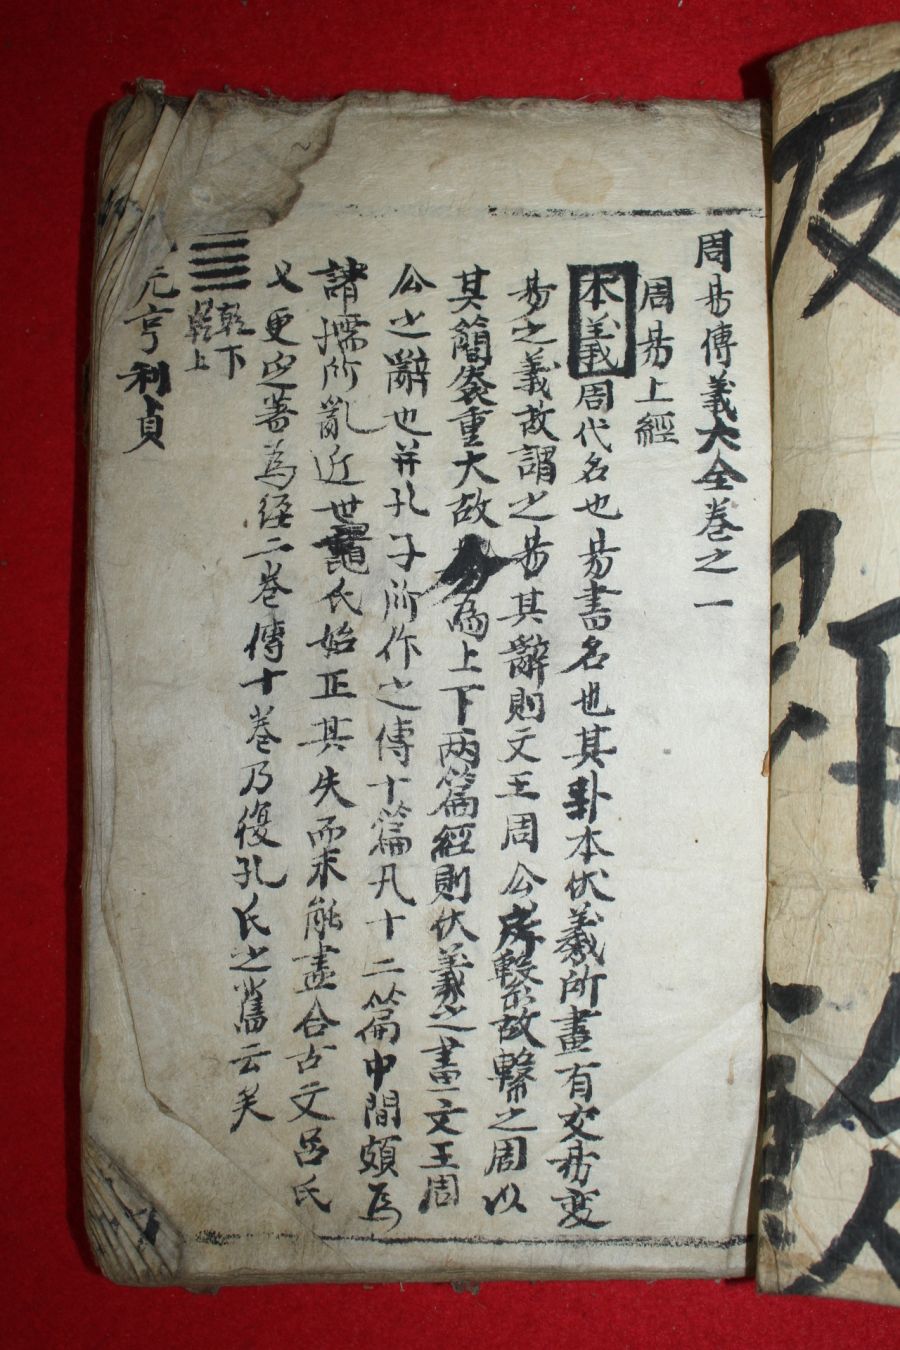 周易傳義大全卷之一
周易上經
本義周代名也易書名也其卦本伏羲所畫有交易變
易之義故謂之易其辭則文王周公所繫故繫之周以
其簡袠重大故分爲上下兩篇經則伏羲之畫文王周
公之辭也并孔子所作之傳十篇凡十二篇中間頗爲
諸儒所亂近世鼂氏始正其失而未能盡合古文呂氏
又更定著為経二卷傳十卷乃復孔氏之舊云矣
乾下
乾上
元亨利貞